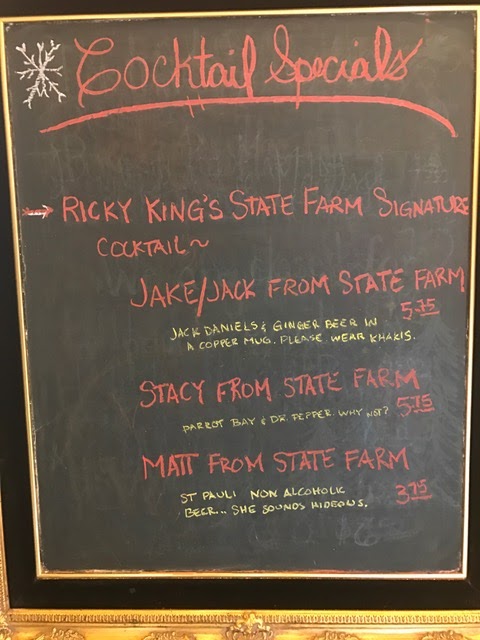 Cocktail Specials
RICKY KING'S STATE FARM SIGNATURE
COCKTAIL~
JAKE/JACK FROM STATE FARM
5.75
JACK DANIELS & GINGER BEER IN
A COPPER MUG. PLEASE WEAR KHAKIS.
STACY FROM STATE FARM
PARROT BAY & DR. PEPPER. WHY NOT? 5.75
MATT FROM STATE FARM
ST PAULI NON ALCOHOLIC 3.75
BEER... SHE SOUNDS HIDEOUS.